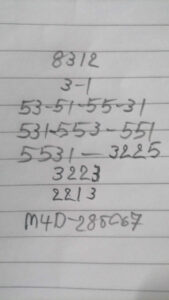 8312
3-1
53-51-55-31
531-553-551
5531-3225
3223
2213
M4D-285C67